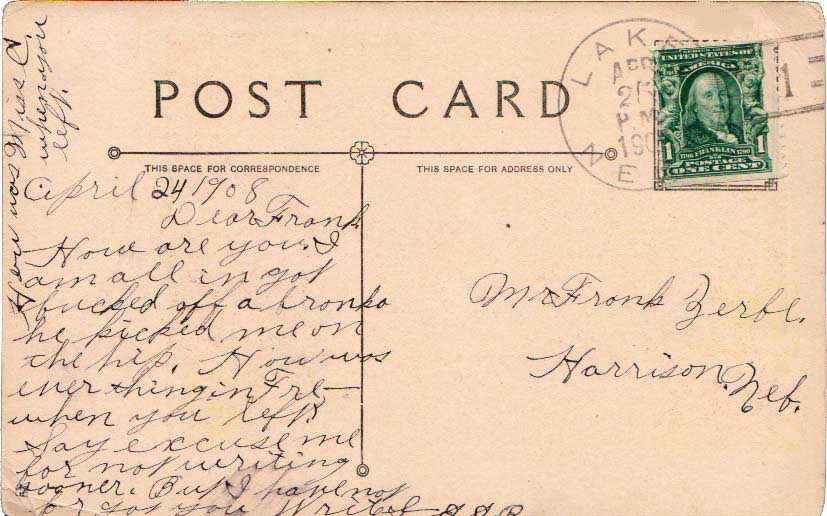 How was Miss C
when you
left.
POST CARD
THIS SPACE FOR CORRESPONDENCE
THIS SPACE FOR ADDRESS ONLY
LAKE
APR
2
P M
190
NE
SERIES 1902
UNITED STATES OF
AMERICA
1 1
1706 FRANKLIN 1790
POSTAGE
ONE CENT
1
April 24 1908
Dear Frank
How are you. I
am all in got
bucked off a bronko
he kicked me on
the hip. How was
ever thing in Fre-
when you left.
Say excuse me
for not writing
sooner. But I have not
for got you Write
Mr Frank Zerbe.
Harrison. Neb.